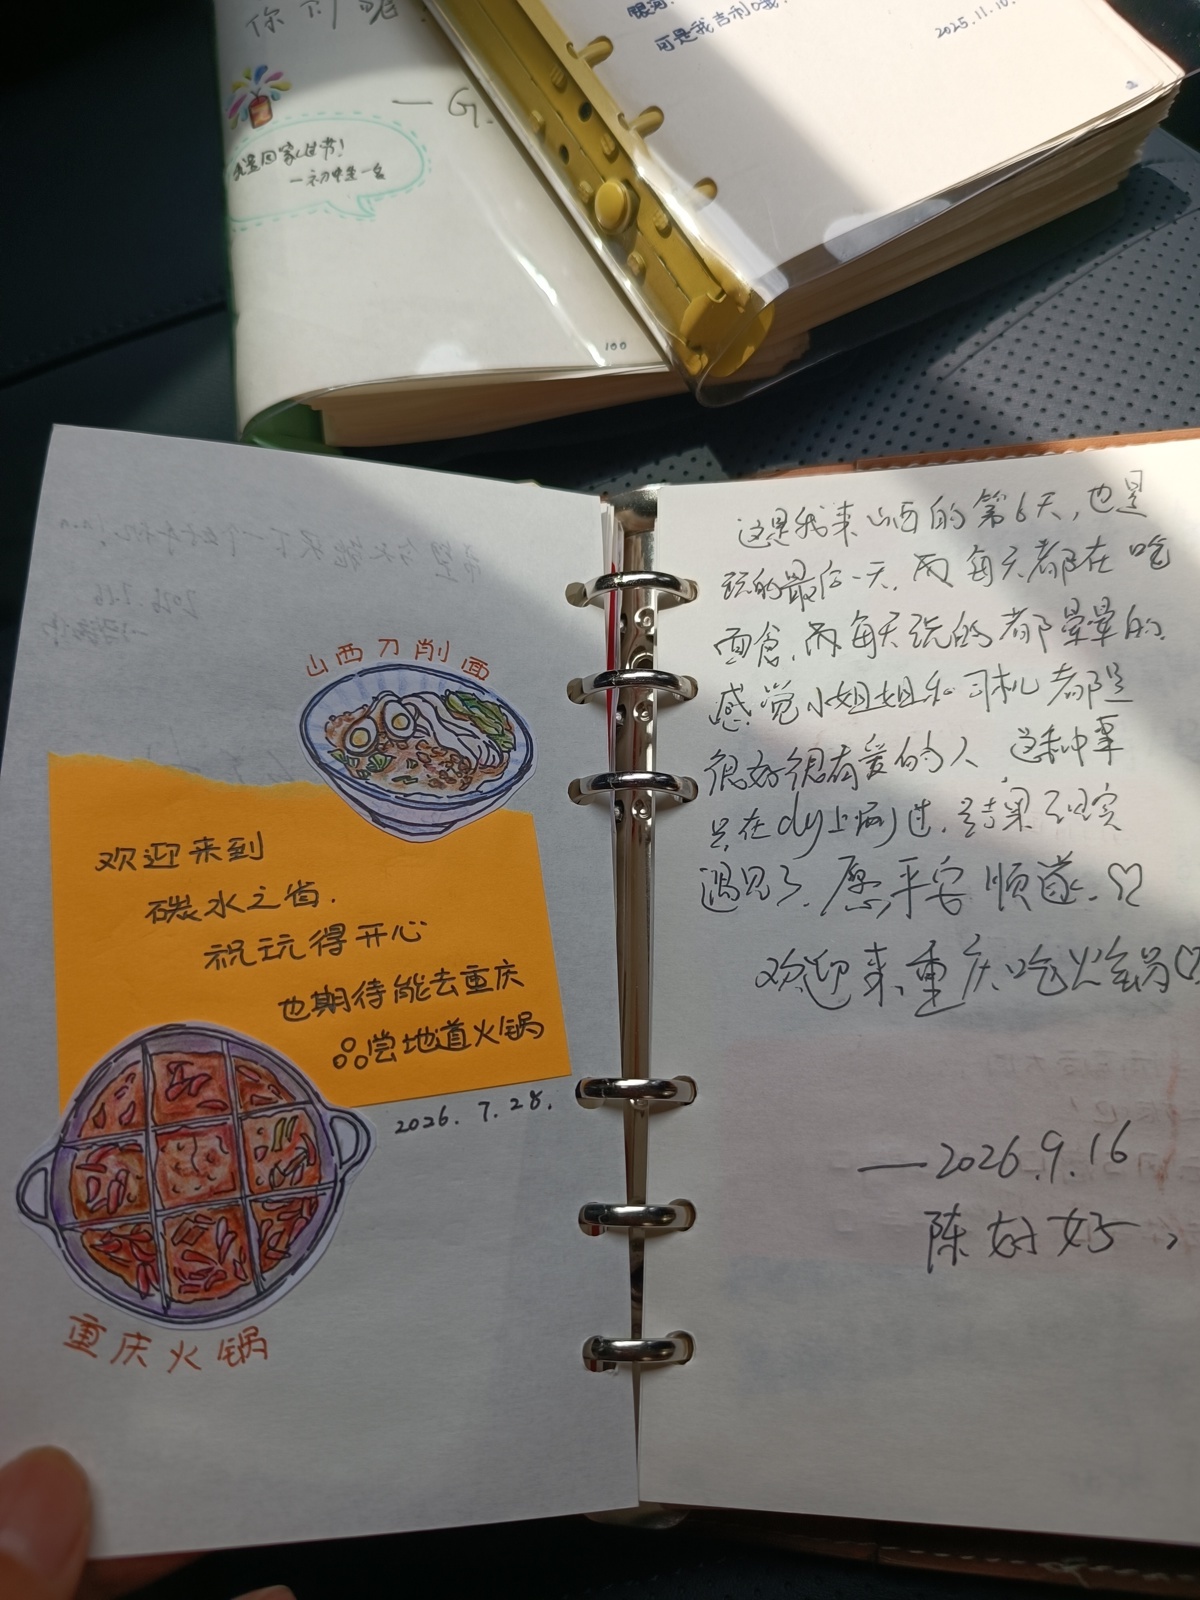 你
— G.
回家过节!
一初中生一名
100
银河.
可是我吉利哦!
2025.11.10.
山西刀削面
欢迎来到
碳水之省.
祝玩得开心
也期待能去重庆
品尝地道火锅
2026.7.28.
重庆火锅
这是我来山西的第6天,也是
玩的最后一天,而每天都在吃
面食,而每天玩的都晕晕的
感觉小姐姐和司机都是
很好很有爱的人 这种事
只在dy上刷过,结果现实
遇见了,愿平安顺遂.♡
欢迎来重庆吃火锅♡
——2026.9.16
陈好